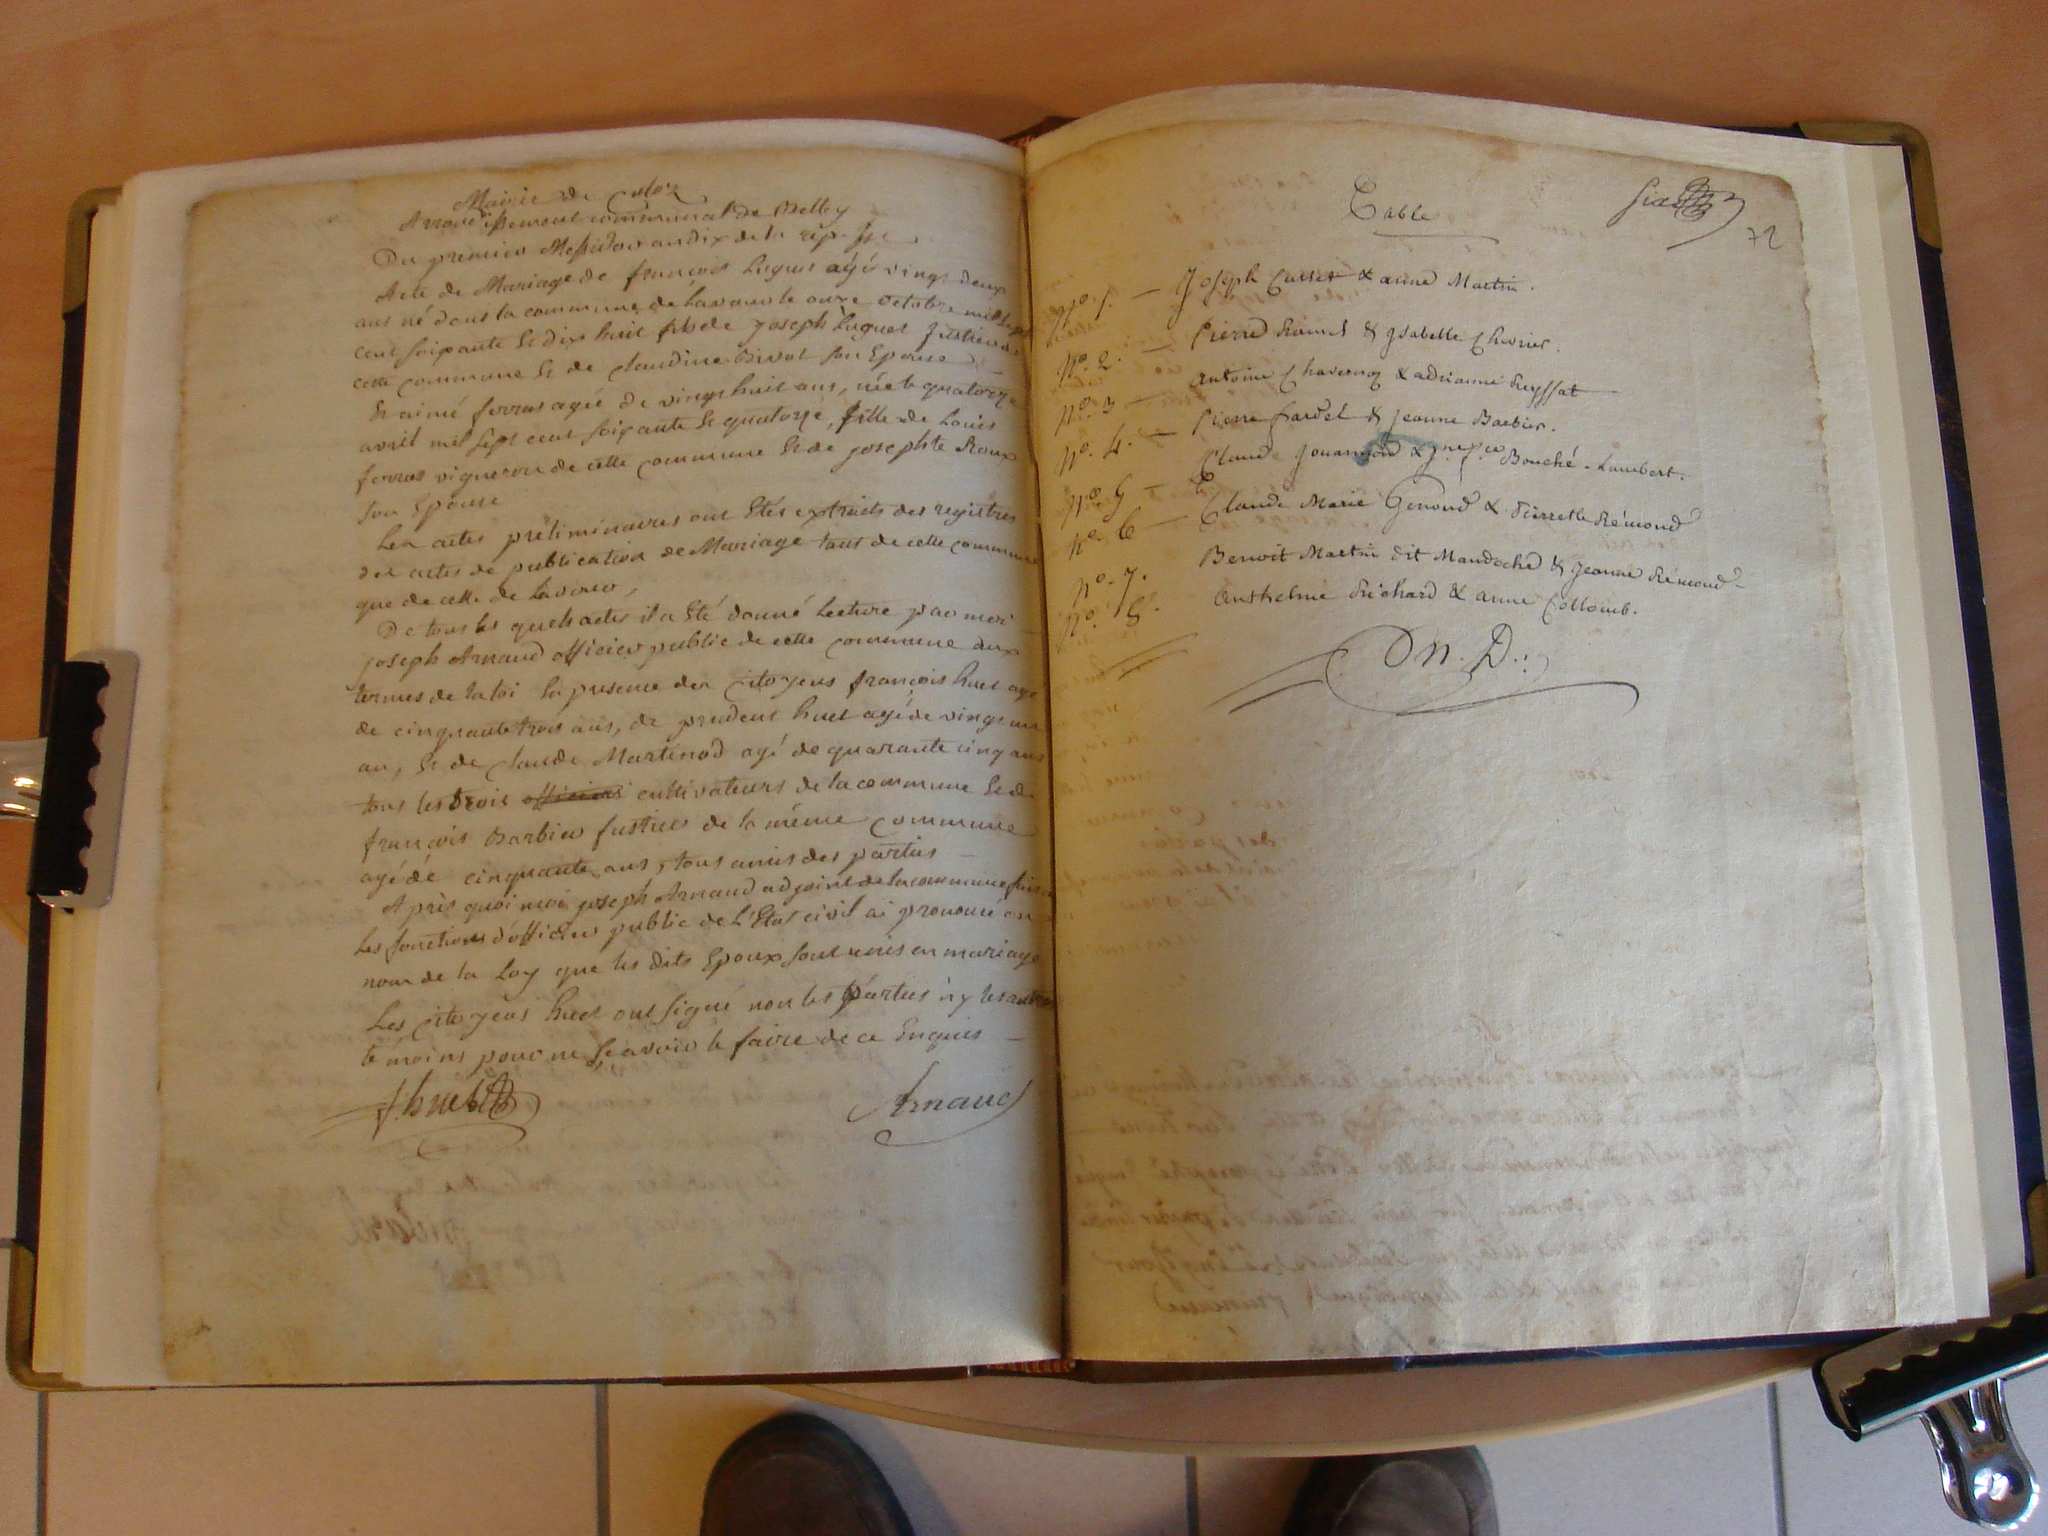 Mairie de Culoz
Arrondissement communal de Belley
Du premier Messidor an dix de la rép. fse
Acte de Mariage de françois Luguet agé de vingt deux
ans né dans la commune de Lavour le onze octobre mil sept
cent soixante et dix huit fils de joseph Luguet fustier de
cette commune et de claudine Bivot son Epouse
Et aimé ferras agée de vingt huit ans, née le quatorze
avril mil sept cent soixante et quatorze, fille de Louis
ferras vigneron de cette commune et de josephte Roux
son Epouse
Les actes préliminaires ont Etés extraits des registres
des actes de publication de Mariage tant de cette commune
que de celle de Lavour,
De tous lesquels actes il a Eté donné Lecture par moi
joseph Arnaud officier public de cette commune aux
termes de la loi En presence des citoyens françois huet agé
de cinquante trois ans, de prudent huet agé de vingt un
an, Et de claude Martinod agé de quarante cinq ans
tous les trois officiers cultivateurs de la commune Et de
françois Barbier fustier de la même commune
agé de cinquante ans, tous amis des parties
Après quoi moi joseph Arnaud adjoint de la commune faisant
Les fonctions d'officier public de L'Etat civil ai prononcé au
nom de la Loy que les dits Epoux sont unis en mariage
Les citoyens huet ont signé non les parties ny les autres
témoins pour ne sçavoir le faire de ce Enquis
fhuet
Arnaud
Table
six
72
N.o 1. — Joseph Cusset & anne Martin.
N.o 2. — Pierre Ramel & ysabelle Chevrier.
N.o 3 — Antoine Chavernoz & adrianne Reyssat
N.o 4. — Pierre fardel & jeanne Barbier.
N.o 5 — Claude Jouannod & Bouché-Lambert.
N.o 6 — Claude Marie Genoud & Pierrette Rémond
N.o 7. Benoit Martin dit Mandoche & Jeanne Rémond
N.o 8. Anthelme Richard & anne Collomb.